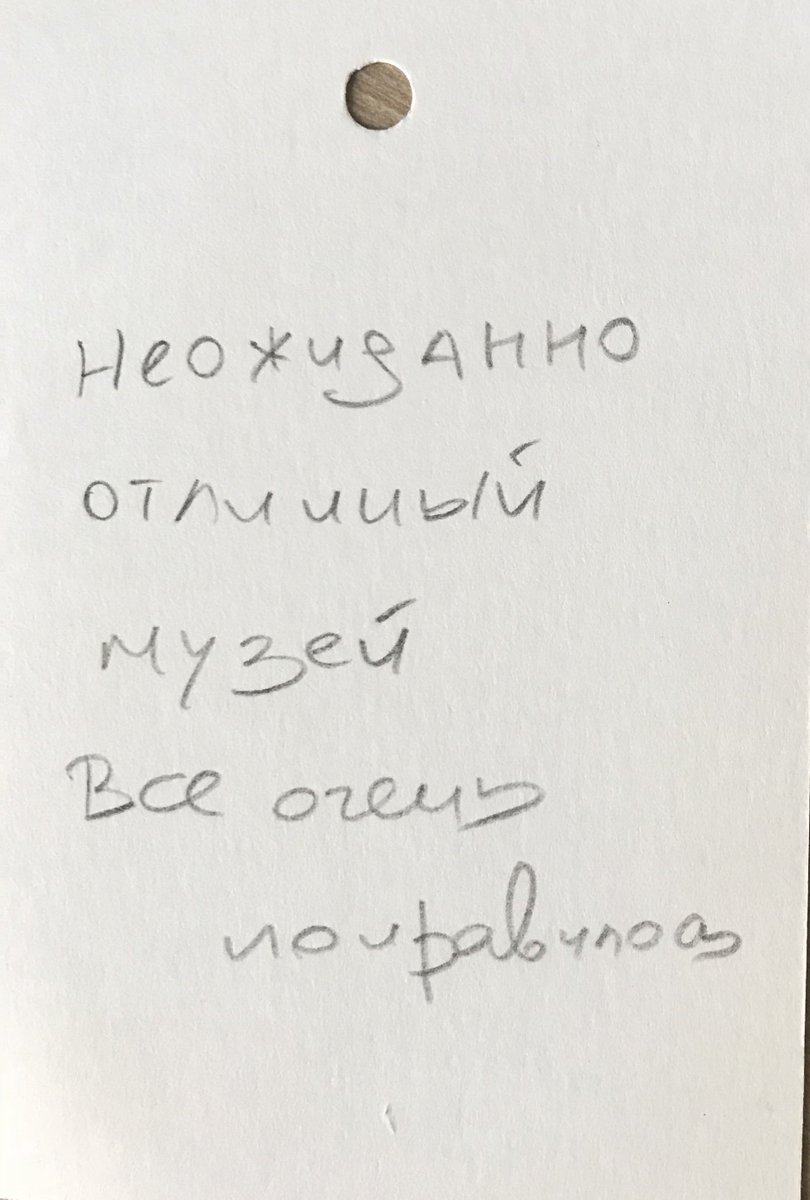 Неожиданно
отличный
музей
Все очень
понравилось